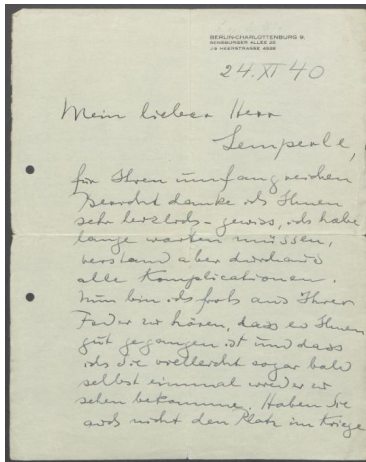 BERLIN-CHARLOTTENBURG 9.
RENSBURGER ALLEE 25
J 9 HEERSTRASSE 4558
24. XI 40
Mein lieber Herr
Lemperle,
für Ihren umfangreichen
Bericht danke ich Ihnen
sehr herzlich – gewiss, ich habe
lange warten müssen,
verstand aber durchaus
alle Komplicationen.
Nun bin ich froh aus Ihrer
Feder zu hören, dass es Ihnen
gut gegangen ist und dass
ich Sie vielleicht sogar bald
selbst einmal wieder zu
sehen bekomme. Haben Sie
auch nicht den Platz im Kriege